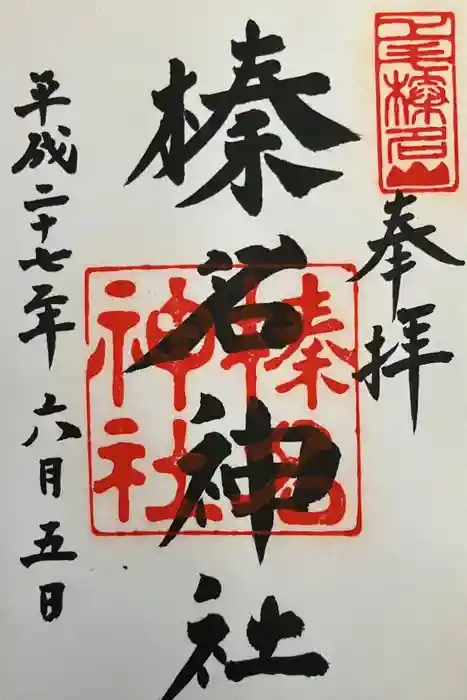 上毛榛名山
奉拝
榛名神社
榛名神社
平成二十七年六月五日